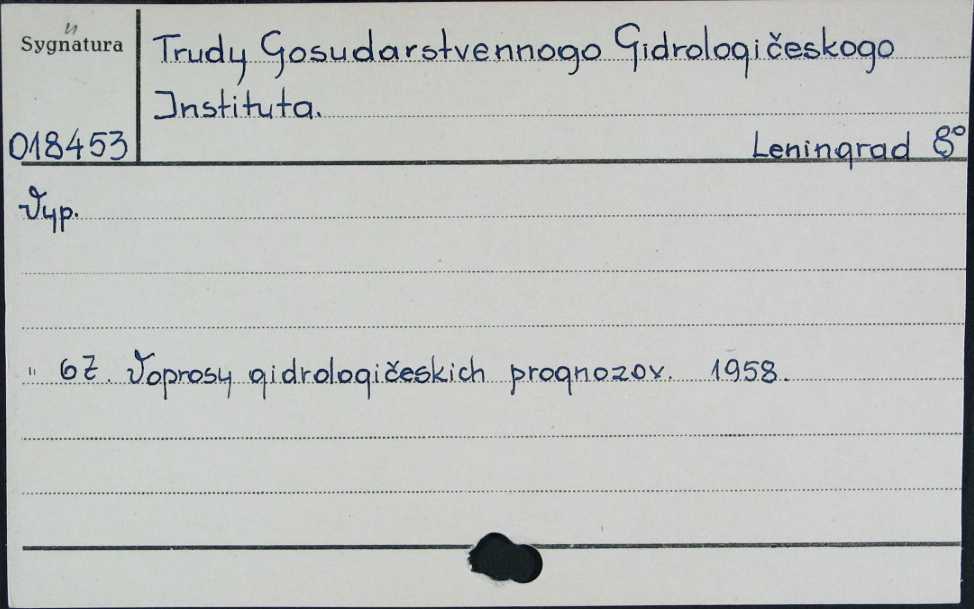 Sygnatura
Trudy Gosudarstvennogo Gidrologičeskogo
Instituta.
018453
Leningrad 8°
Vyp.
" 67. Voprosy gidrologičeskich prognozov. 1958.